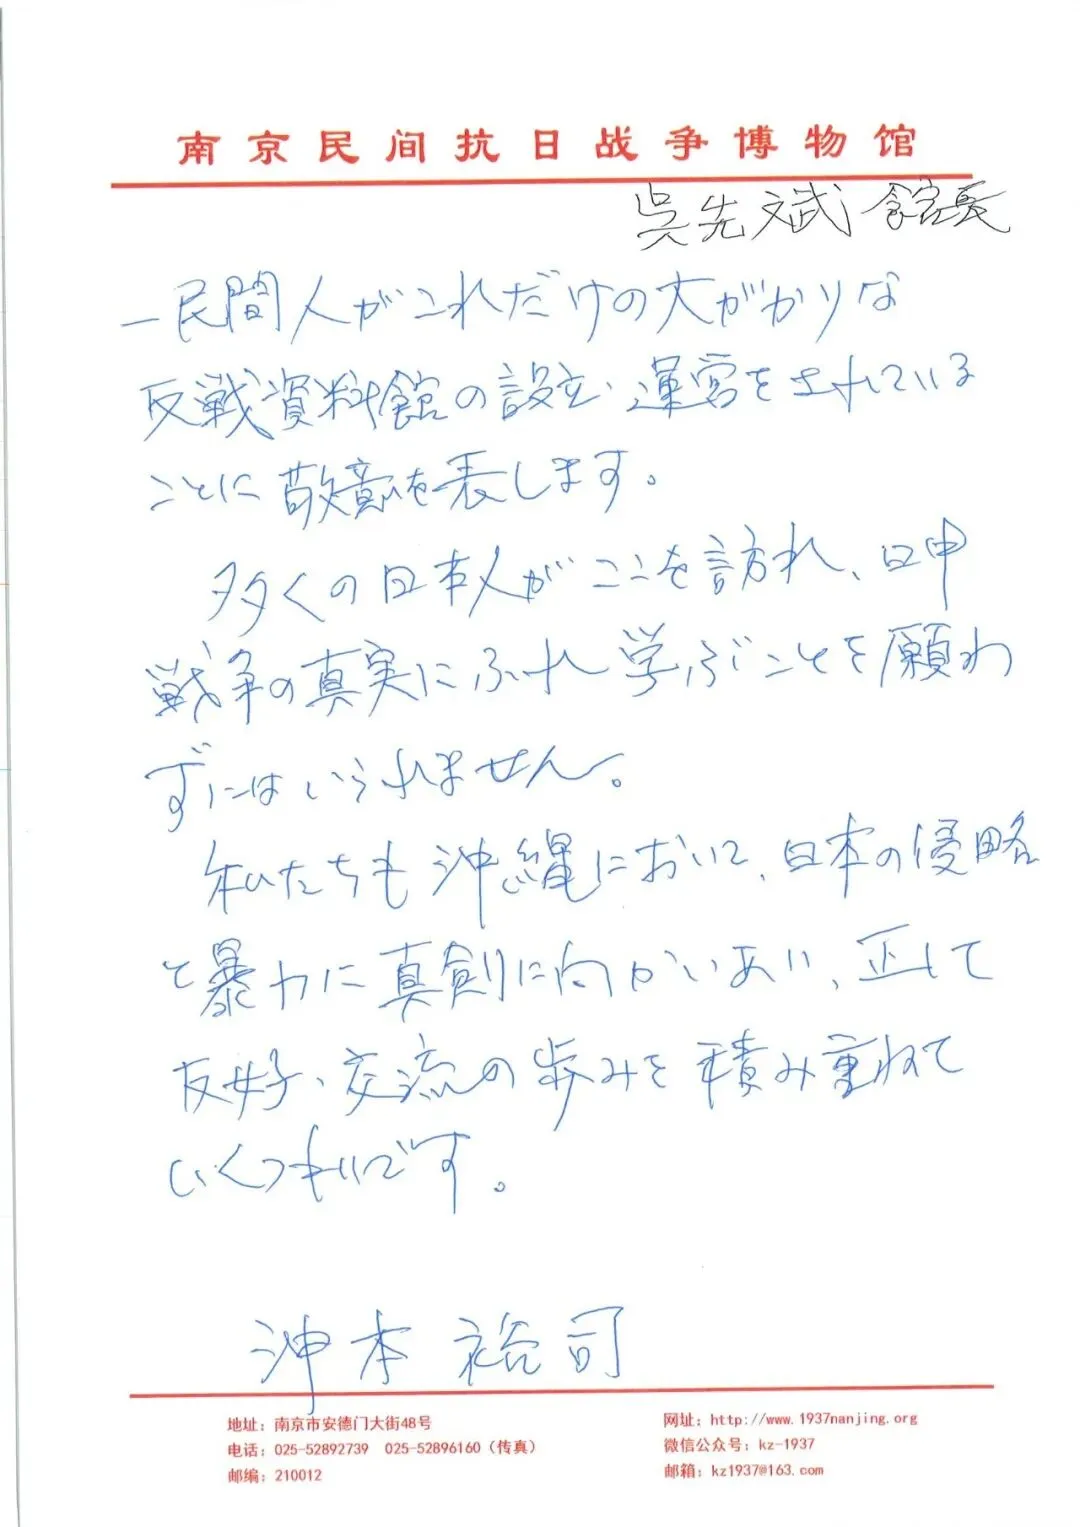 南京民间抗日战争博物馆
呉先斌館長
一民間人がこれだけの大がかりな
反戦資料館の設立・運営をされている
ことに敬意を表します。
多くの日本人がここを訪れ、日中
戦争の真実にふれ学ぶことを願わ
ずにはいられません。
私たちも沖縄において、日本の侵略
と暴力に真剣に向かいあい、正して
友好、交流の歩みを積み重ねて
いくつもりです。
沖本裕司
地址：南京市安德门大街48号
电话：025-52892739 025-52896160（传真）
邮编：210012
网址：http://www.1937nanjing.org
微信公众号：kz-1937
邮箱：kz1937@163.com